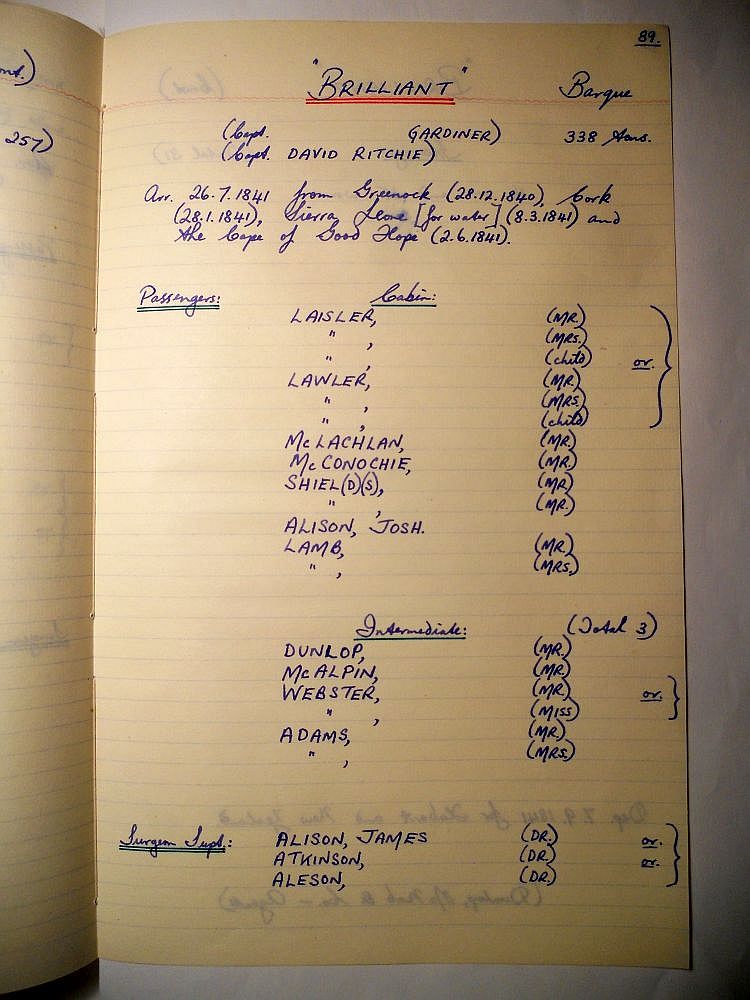 89.
ont.)
257)
"BRILLIANT" Barque
(Capt. GARDINER) 338 tons.
(Capt. DAVID RITCHIE)
Arr. 26.7.1841 from Greenock (28.12.1840), Cork
(28.1.1841), Sierra Leone [for water] (8.3.1841) and
the Cape of Good Hope (2.6.1841).
Passengers: Cabin:
LAISLER, (MR.)
" , (MRS.)
" , (child) or.
LAWLER, (MR.)
" , (MRS.)
" , (child)
McLACHLAN, (MR.)
McCONOCHIE, (MR.)
SHIEL(D)(S), (MR.)
" , (MR.)
ALISON, JOSH.
LAMB, (MR.)
" , (MRS.)
Intermediate: (Total 3)
DUNLOP, (MR.)
McALPIN, (MR.)
WEBSTER, (MR.) or.
" , (MISS)
ADAMS, (MR.)
" , (MRS.)
Surgeon Supt.: ALISON, JAMES (DR.) or.
ATKINSON, (DR.) or.
ALESON, (DR.)